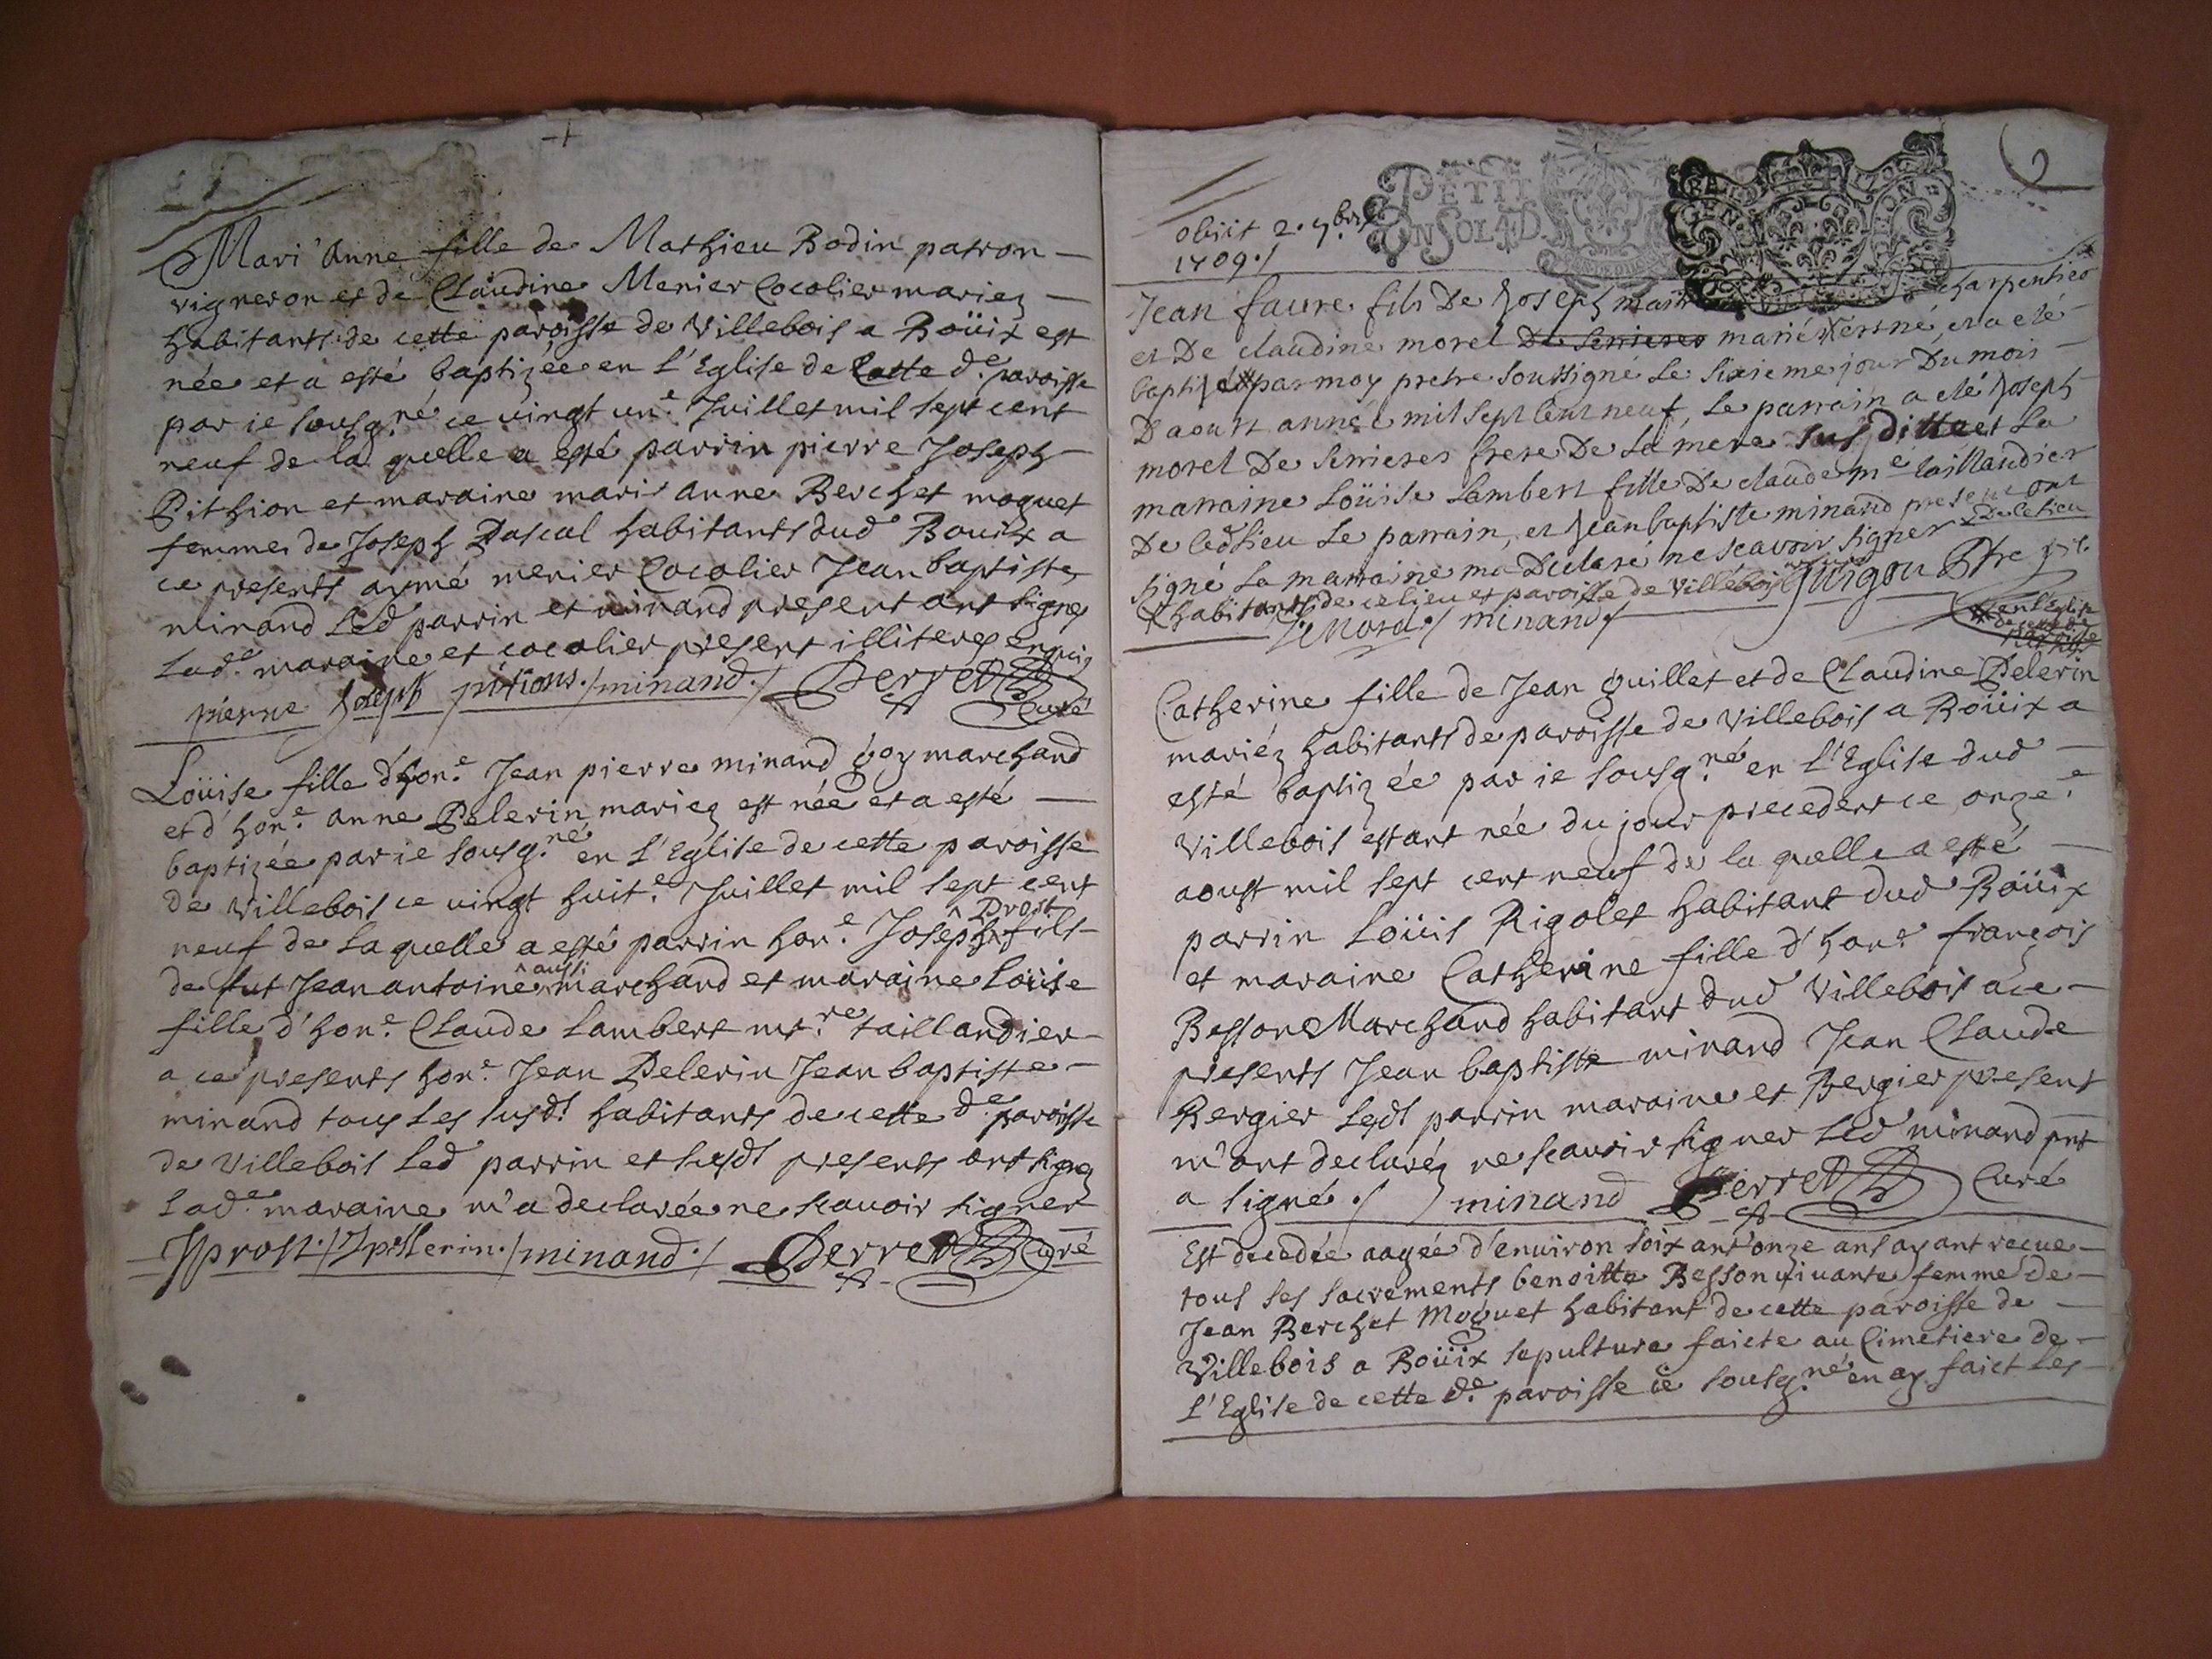 Mari' Anne fille de Mathieu Bodin patron
vigneron et de Claudine Menier Cocolier mariez
habitants de cette paroisse de Villebois a Boüix est
née et a esté baptizée en l'Eglise de Cette d.e paroisse
par ie sousg.né ce vingt un.e Juillet mil sept cent
neuf de la quelle a esté parrin pierre Joseph
Pithion et maraine mari anne Berchet moquet
femme de Joseph Pascal habitants dud Bouix a
ce presents aymé menier Cocolier Jean baptiste
minand led parrin et minand present ont signe
lad.e maraine et cocolier present illiterez enquis
pierre Joseph pitions ./ minand ./ Perret Curé
Loüise fille d'hon.e Jean pierre minand goy marchand
et d'hon.e anne Pelerin mariez est née et a esté
baptizée par ie sousg.né en l'Eglise de cette paroisse
de Villebois ce vingt huit.e Juillet mil sept cent
neuf de laquelle a esté parrin hon.e Joseph Prost fils
de fut Jean antoine aussi marchand et maraine Loüise
fille d'hon.e Claude Lambert mt.re taillandier
a ce presents hon.e Jean Pelerin Jean baptiste
minand tous les susd.t habitants de cette d.e paroisse
de Villebois led parrin et susd.t presents ont signez
lad.e maraine m'a declarée ne scavoir signer
J prost ./ J pellerin ./ minand ./ Perret Curé
obiit 2. 9.bris
1709 ./
PETIT
UN SOL 4 D.
GEN ION
6
Jean faure fils De Joseph maitre charpentier
et De claudine morel De Serrieres mariés est né, et a eté
baptisé par moy pretre soussigné Le sixieme jour Du mois
D'aoust année mil sept cent neuf, Le parrain a eté Joseph
morel De serrieres frere De La mere sus ditte et La
marraine Loüise Lambert fille De claude m.e taillandier
De ced lieu Le parrain, et Jean baptiste minand present ont
signé La marraine ma Declaré ne scavoir signer De ce lieu
habitants de ce lieu et paroisse de Villebois Guigou Ptre vic.
J Morel ./ minand ./
en l'Eglise
de cette d.e
paroisse
Catherine fille de Jean guillet et de Claudine Pelerin
mariéz habitants de paroisse de Villebois a Boüix a
esté baptizée par ie sousg.né en l'Eglise dud
Villebois estant née du jour precedent ce onze.e
aoust mil sept cent neuf de la quelle a esté
parrin Loüis Rigolet habitant dud Boüix
et maraine Catherine fille d'hon.e françois
Besson Marchand habitant dud Villebois a ce
presents Jean baptiste minand Jean Claude
Bergier lesd.t parrin maraine et Bergier present
m'ont declaréz ne scauoir signer led minand pnt
a signé ./ minand Perret Curé
Est decedée aagée d'enuiron soixant'onze ans ayant recue
tous ses sacrements benoitte Besson viuante femme de
Jean Berchet Moquet habitant de cette paroisse de
Villebois a Boüix sepulture faicte au Cimetiere de
L'Eglise de cette d.e paroisse ie sousg.né en ay faict les